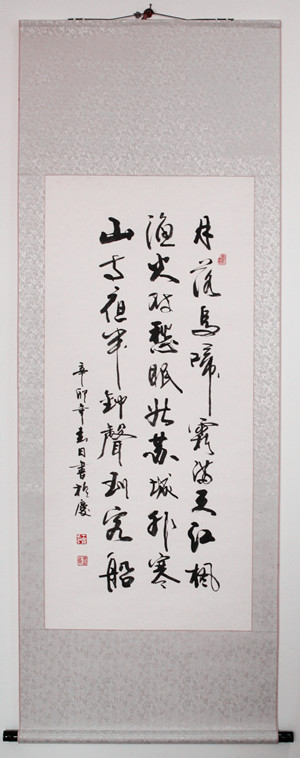 月落烏啼霜满天江楓
渔火对愁眠姑蘇城外寒
山寺夜半鐘聲到客船
辛卯年春日書於慶